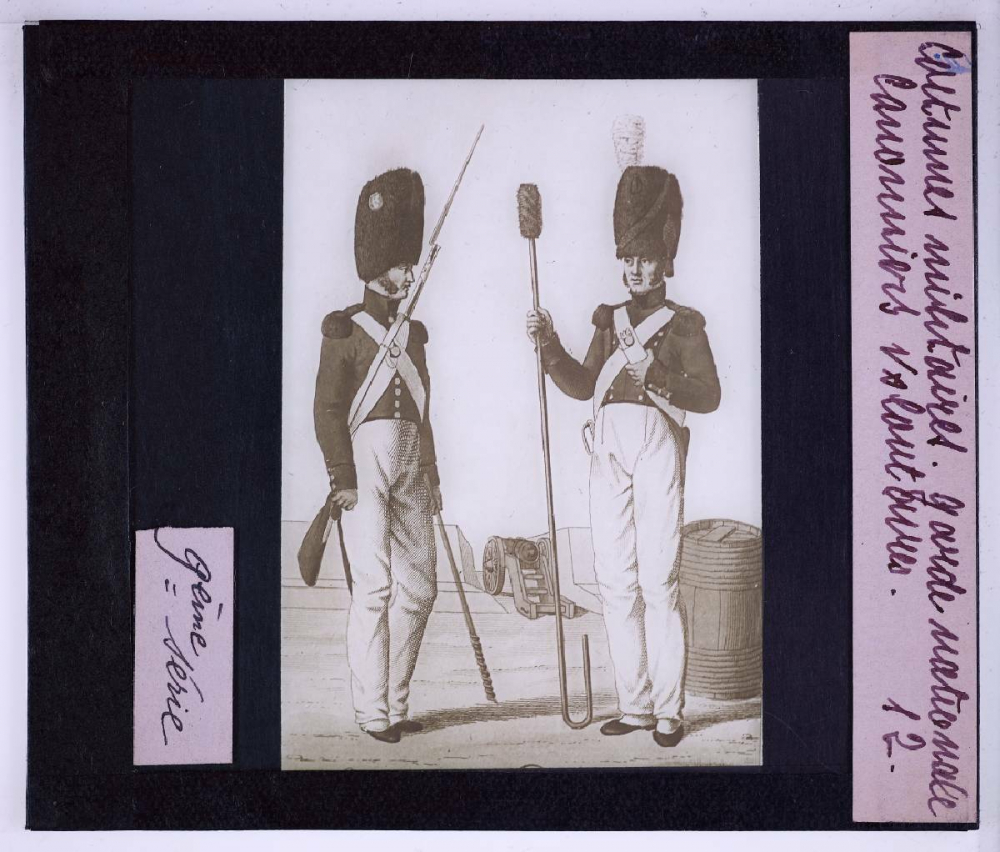 Costumes militaires. Garde nationale
Canonniers volontaires. 12.
9ème série